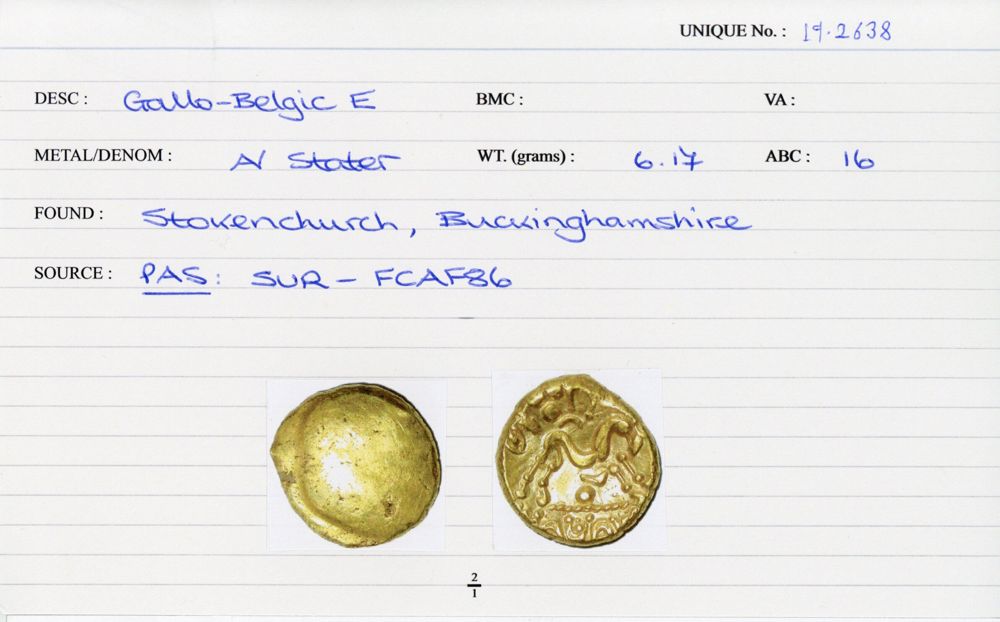 UNIQUE No. : 19.2638
DESC : Gallo-Belgic E BMC : VA :
METAL/DENOM : AV Stater WT. (grams) : 6.17 ABC : 16
FOUND : Stokenchurch, Buckinghamshire
SOURCE : PAS: SUR-FCAF86
2
1